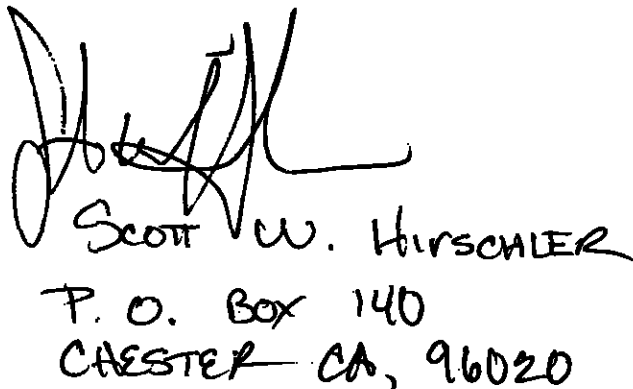 Scott W. Hirschler
P. O. BOX 140
CHESTER CA, 96020